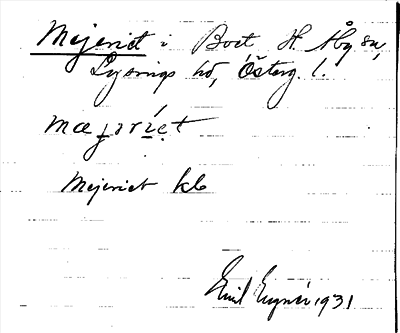 Mejeriet i Boet H. Åby sn,
Lysings hd, Österg. l.
mæjəríet
Mejeriet kb
Emil Eugnér 1931